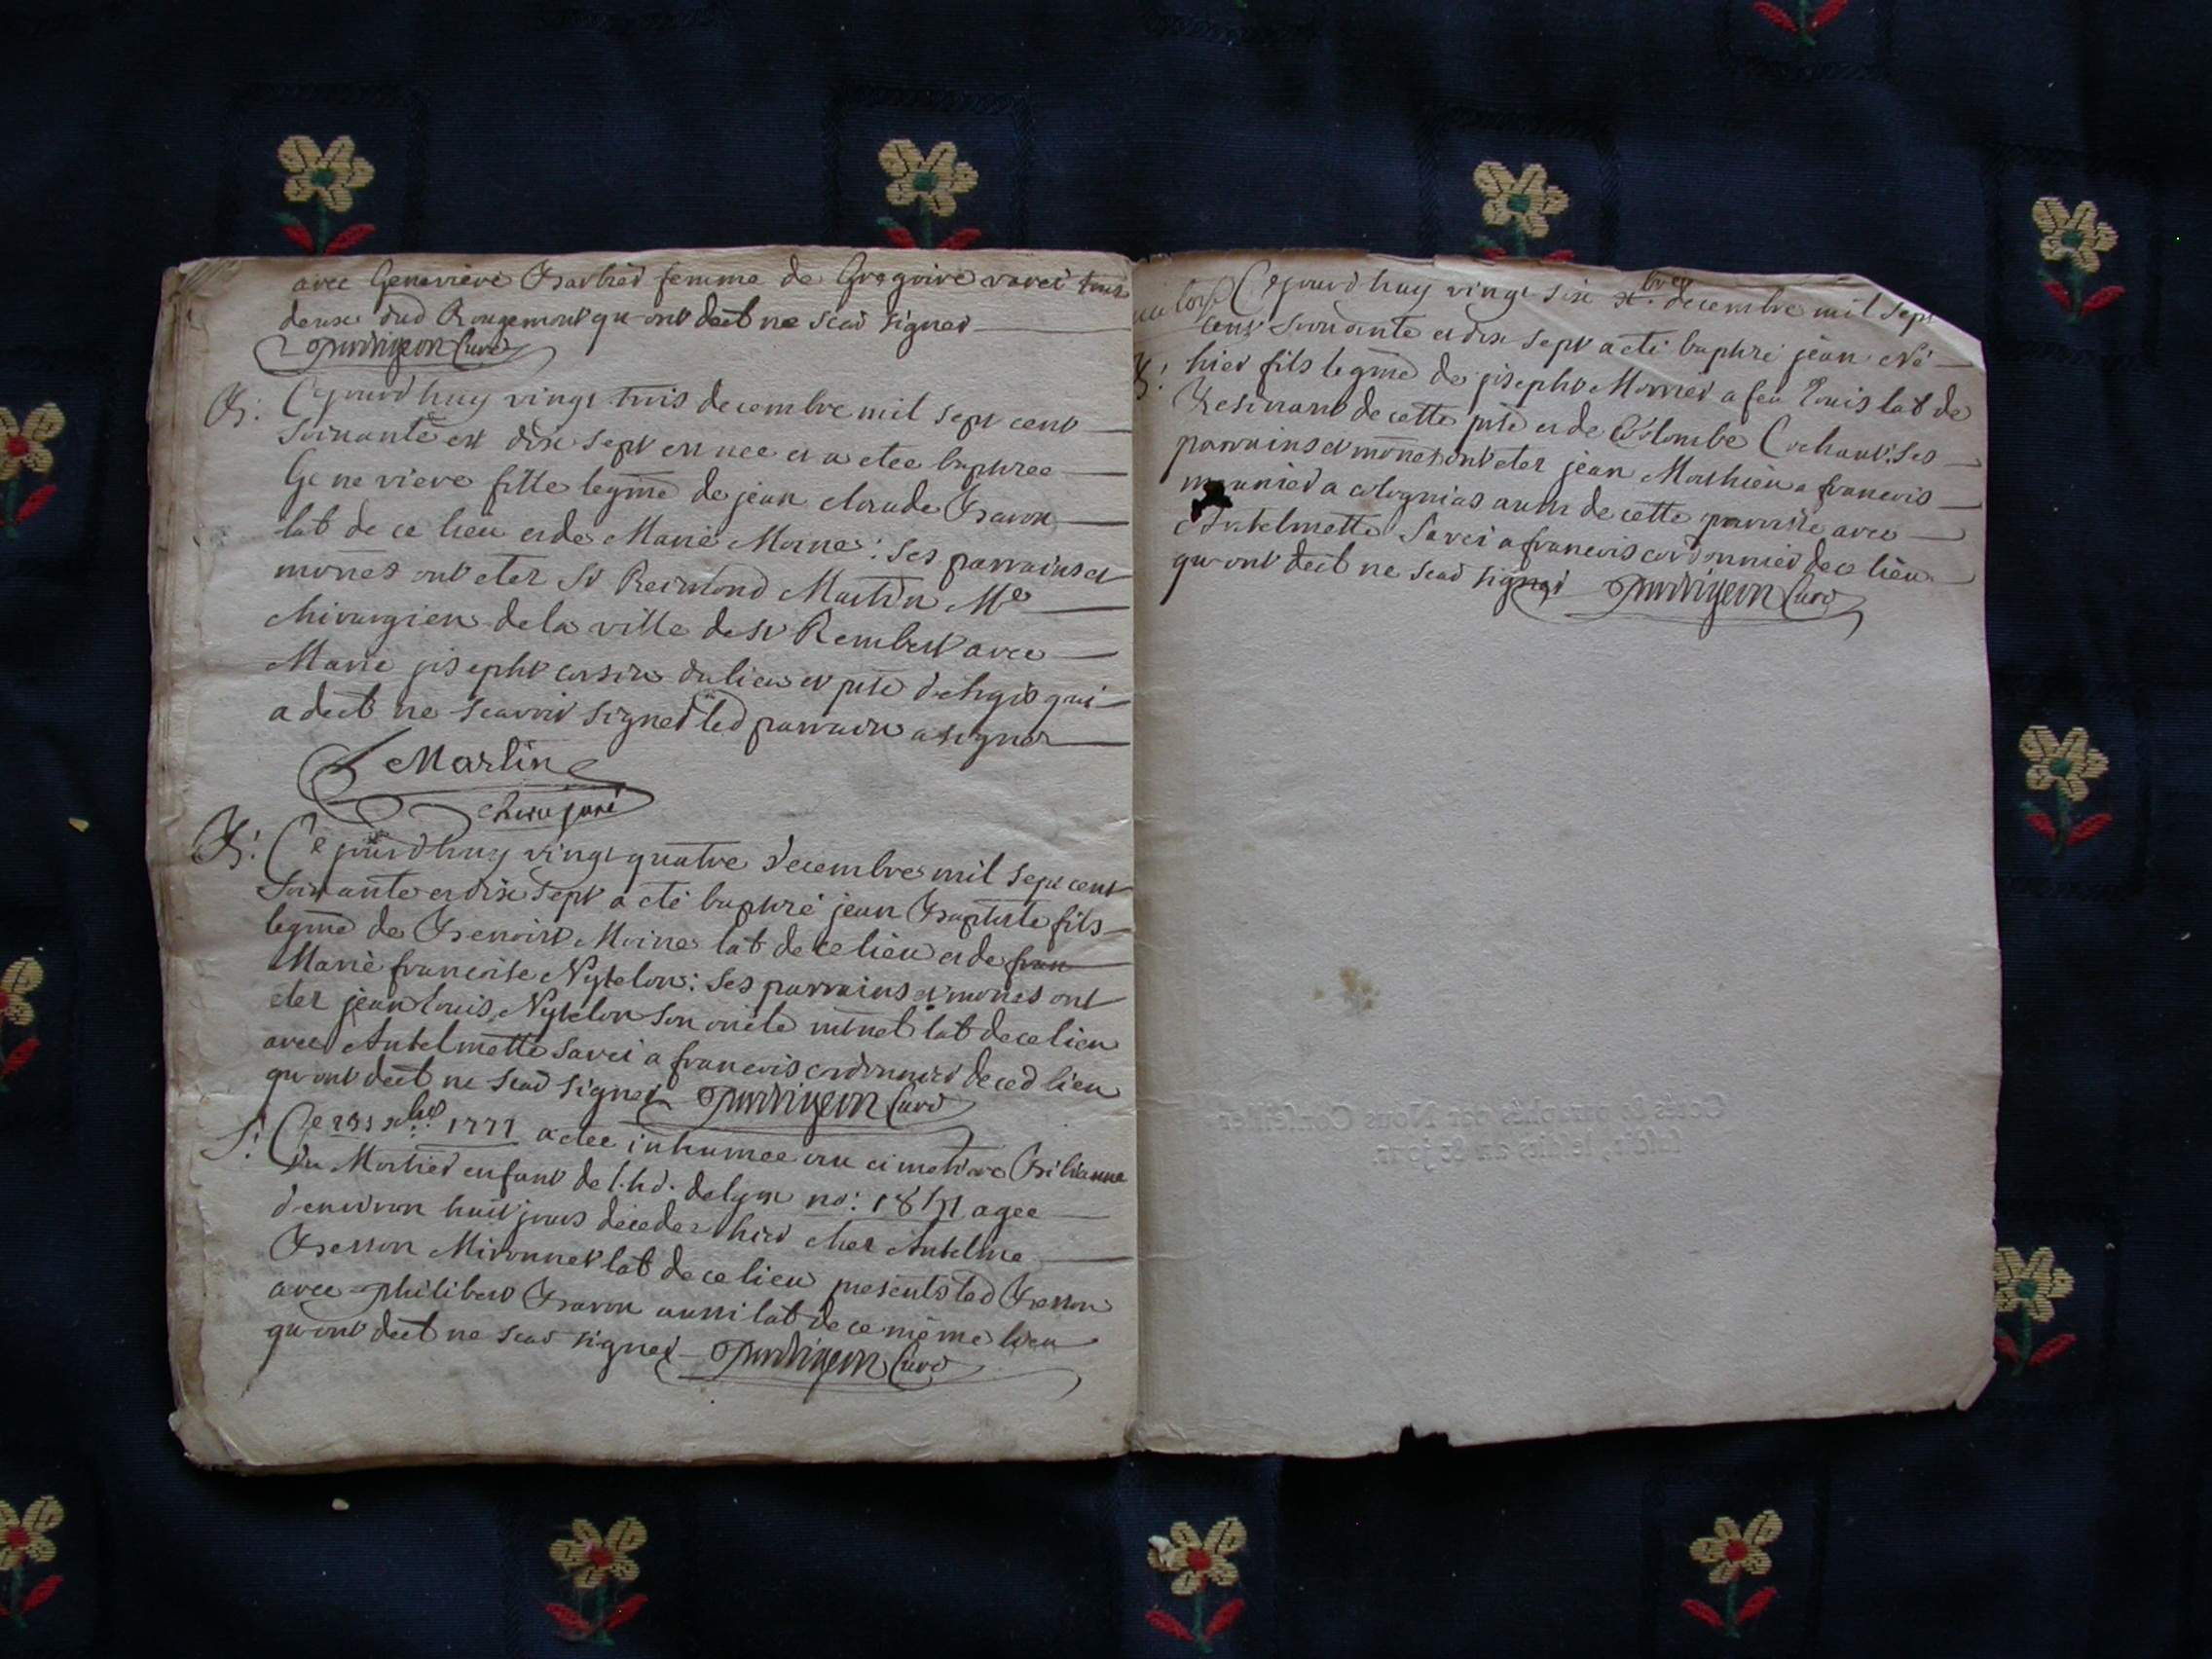 avec Genevieve Barbier femme de Gregoire varei tous
deux dud Rougemont qu ont dect ne scav signer
Curé
B: Cejourdhuy vingt trois decembre mil sept cent
soixante et dix sept est nee et a etee baptizee
Genevieve fille legme de jean claude Baron
lab de ce lieu et de Marie Moine: ses parrains et
mones ont etez Sr Reimond Martin Me
chirurgien de la ville de St Rembert avec
Marie joseph du lieu et pssé qui
a dect ne scavoir signer led parrain a signer
Martin
chiru juré
B: Cejourdhuy vingt quatre decembre mil sept cent
soixante et dix sept a eté baptizé jean Baptiste fils
legme de Benoist Moine lab de ce lieu et de fran
Marie francoise Nyvelon: ses parrains et mones ont
etez jean Louis Nyvelon son oncle lab de ce lieu
avec Antelmette Savei a francois cordonnier de ced lieu
qu ont dect ne scav signer Curé
S: Ce 29e xbre 1777 a etee inhumee au cimetiere
du Mortier enfant de l.hd. de lyon no: agee
d'environ huit jours decedez hier chez Antelme
Besson Mironnet lab de ce lieu presents led Besson
avec philibert Baron aussi lab de ce même lieu
qu ont dect ne scav signer Curé
Cejourdhuy vingt six decembre mil sept
cent soixante et dix sept a eté baptizé jean
B: fils legme de joseph a feu Louis lab de
de cette psse et de Colombe ses
parrains et mones ont etez jean Mathieu a francois
aussi de cette parroisse avec
Antelmette Savei a francois cordonnier de ce lieu
qu ont dect ne scav signer Curé